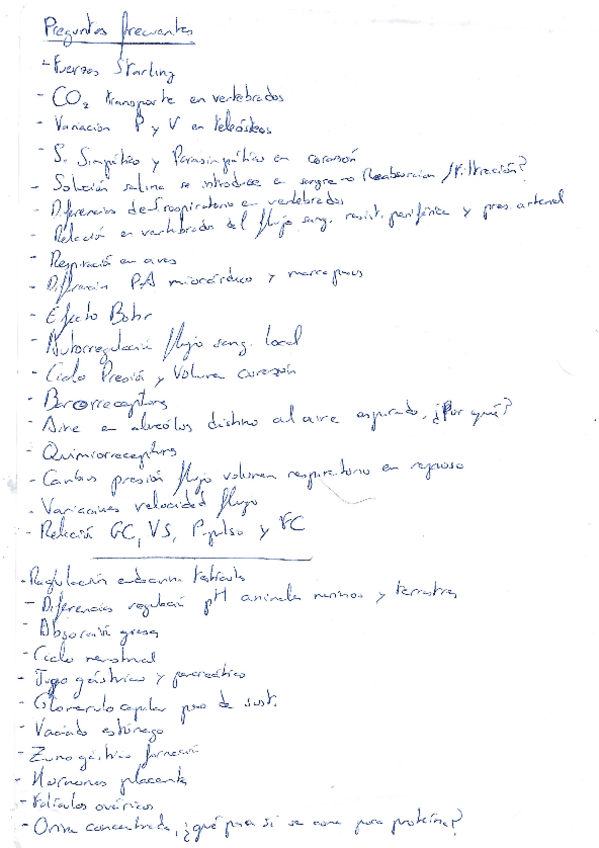 Preguntas frecuentes
- Fuerzas Starling
- CO2 transporte en vertebrados
- Variación P y V en teleósteos
- S. Simpático y Parasimpático en corazón
- Solución salina se introduce en sangre → Reabsorción/filtración?
- Diferencias respiratorio en vertebrados
- Relación en vertebrados del flujo sang. resist. periférica y pres. arterial
- Respiració en aves
- Diferencia PA miocárdico y marcapasos
- Efecto Bohr
- Autorregulació flujo sang. local
- Ciclo Presión y Volumen corazón
- Barorreceptores
- Aire en alveólos distino al aire aspirado, ¿Por qué?
- Quimiorreceptores
- Cambios presión flujo volumen respiratorio en reposo
- Variaciones velocidad flujo
- Relació GC, VS, P. pulso y FC
- Regulación endocrina testículo
- Diferencias regulació pH animales marinos y terrestres
- Absorció grasas
- Ciclo menstrual
- Jugo gástrico y pancreático
- Glomerulo capilar paso de sust.
- Vaciado estómago
- Zumo gástrico formació
- Hormonas placenta
- Folículos ováricos
- Orina concentrada, ¿qué pasa si se come poca proteína?